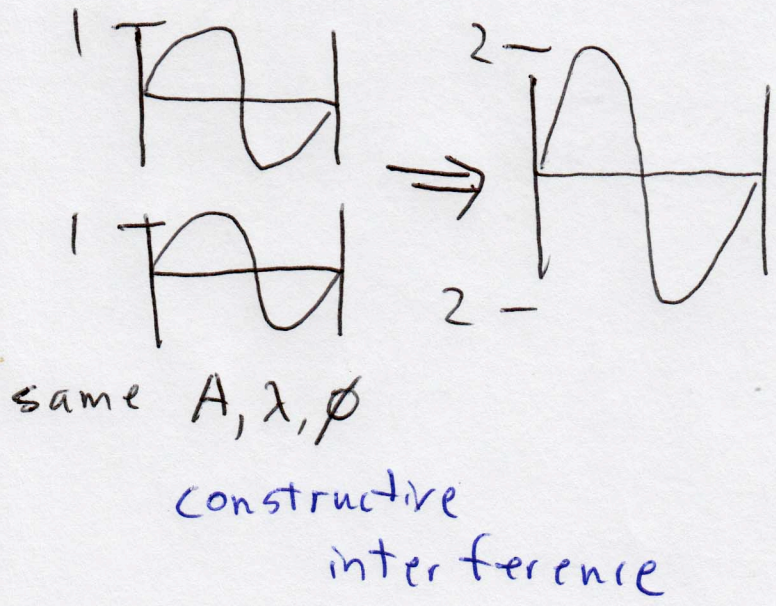 1
2 -
1
2 -
same A, λ, φ
constructive
interference